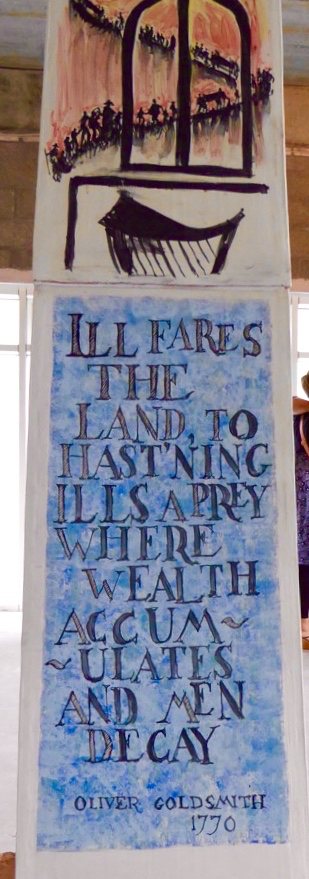 ILL FARES
THE
LAND, TO
HAST'NING
ILLS A PREY
WHERE
WEALTH
ACCUM~
~ULATES
AND MEN
DECAY
OLIVER GOLDSMITH
1770